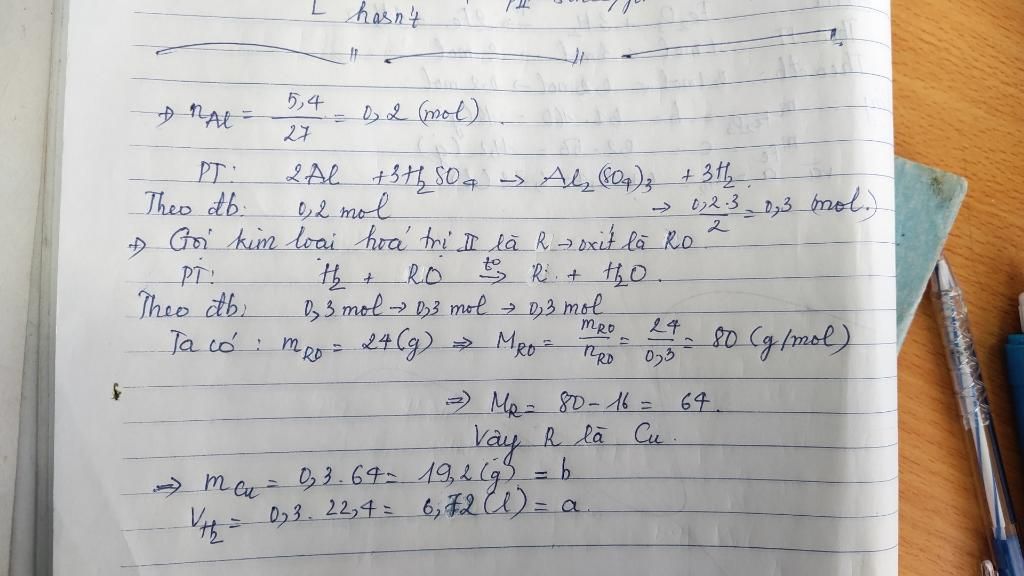 hasn't
+) nAl = 5,4/27 = 0,2 (mol).
PT: 2Al + 3H2SO4 → Al2(SO4)3 + 3H2
Theo đb: 0,2 mol → 0,2.3/2 = 0,3 (mol.)
+) Gọi kim loại hoá trị II là R → oxit là RO
PT: H2 + RO t°→ R + H2O.
Theo đb: 0,3 mol → 0,3 mol → 0,3 mol
Ta có: mRO = 24(g) => MRO = mRO/nRO = 24/0,3 = 80 (g/mol)
=> MR = 80 - 16 = 64.
Vậy R là Cu.
=> mCu = 0,3.64 = 19,2(g) = b
VH2 = 0,3. 22,4 = 6,72(l) = a.